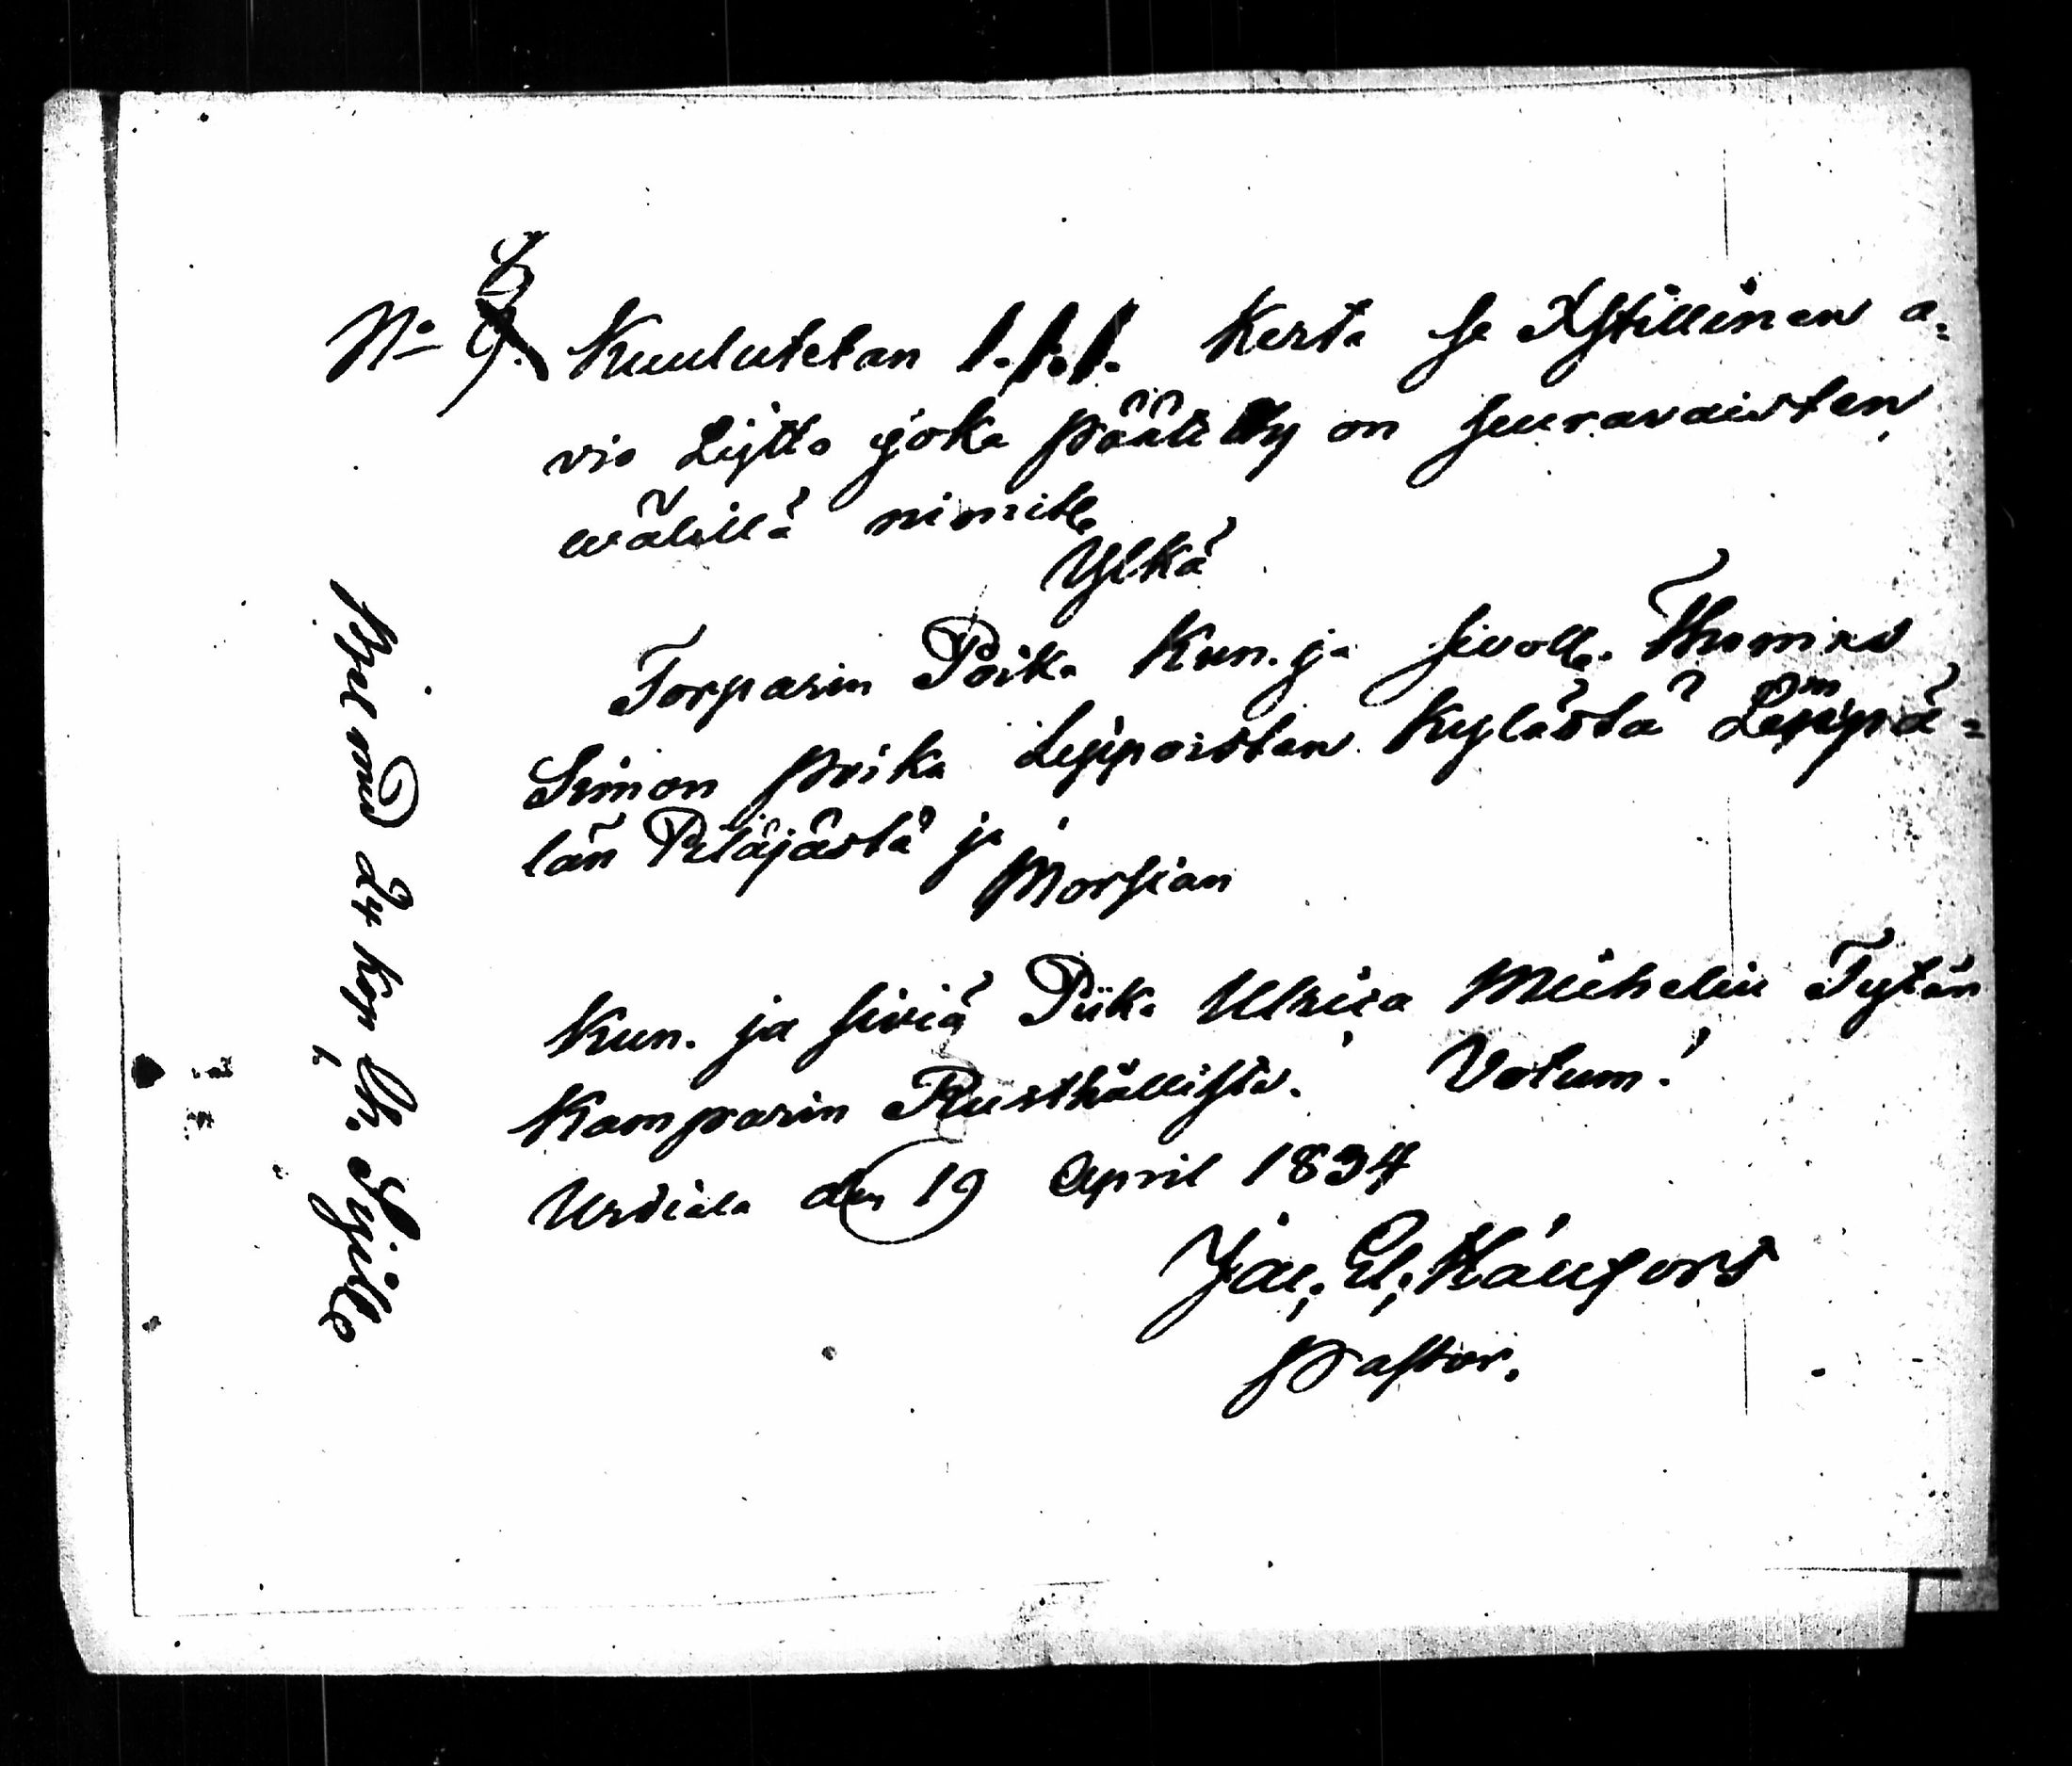 No 8 Kuulutetan 1.1.1. Kerta se Xstillinen a-
vio Lijtto joka päätetty on seuravaisten
wälillä nimitt.
Ylkä
Torparin Poika Kun. ja sivoll. Thomas
Simon poika Leppoisten Kylästä Lempä-
län Pitäjästä ja
Morsian
Kun. ja siviä Piika Ulrica Michelin Tytär
Kamparin Rusthållista. Votum!
Urdiala den 19 April 1834
Jac. Ed. Hänfors
Pastor.
24 kop